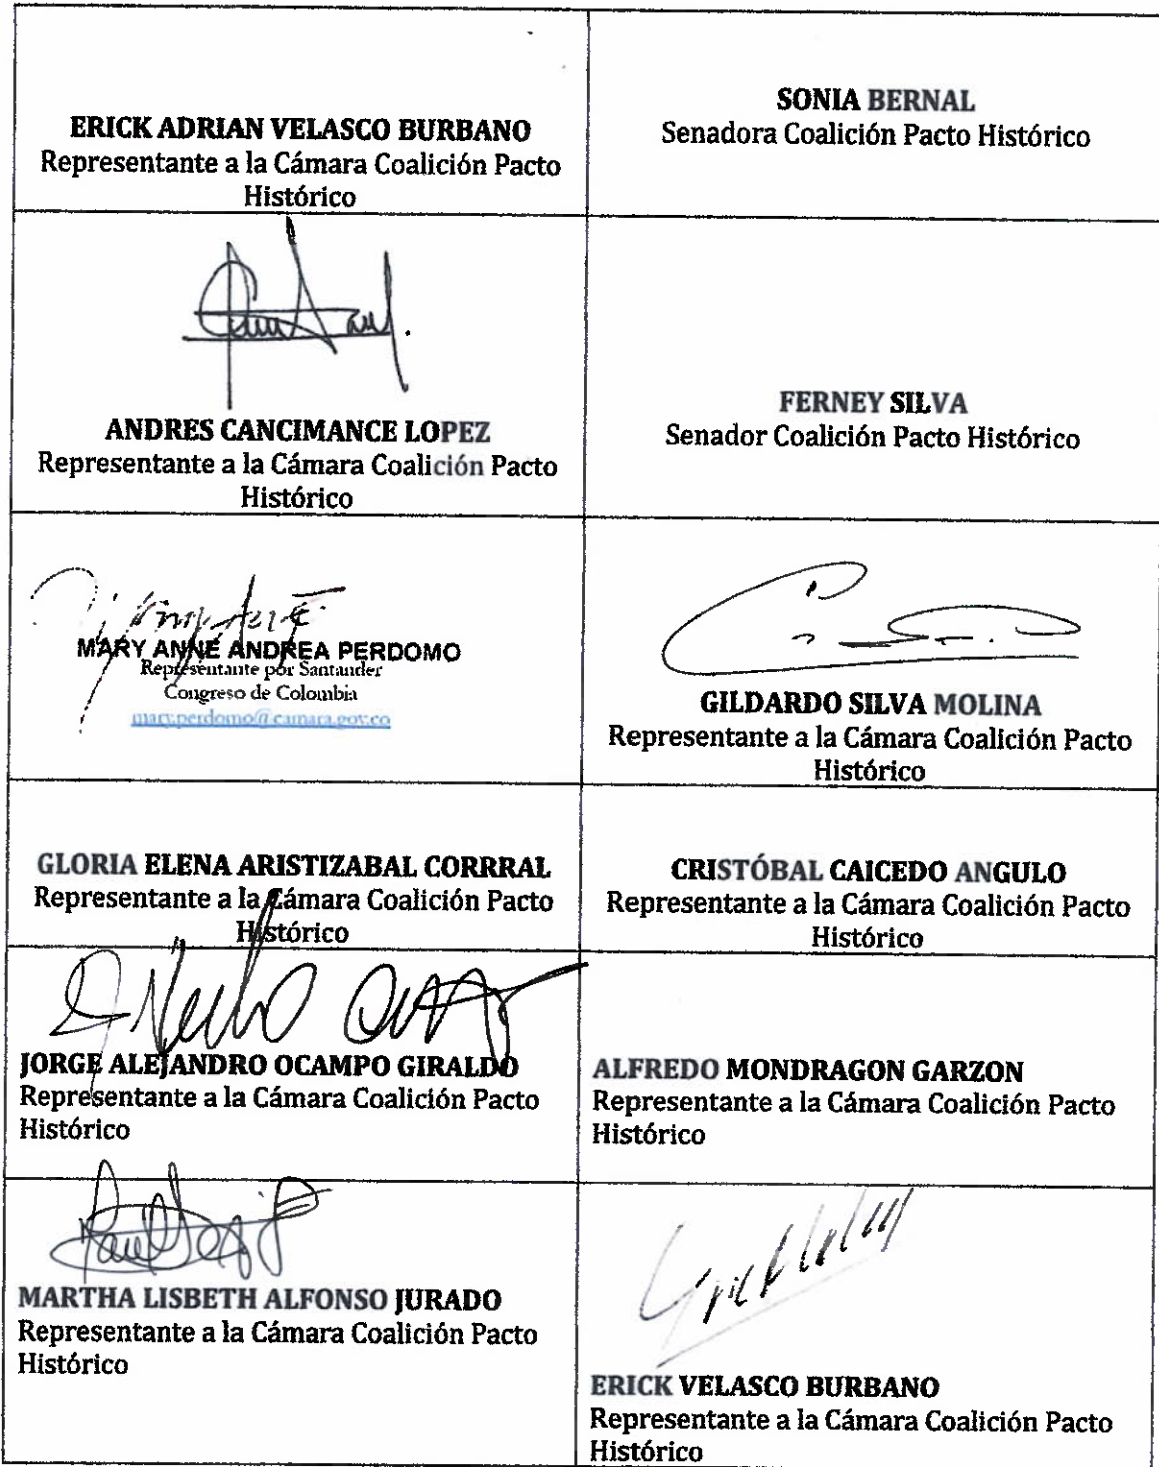 ERICK ADRIAN VELASCO BURBANO
Representante a la Cámara Coalición Pacto
Histórico
SONIA BERNAL
Senadora Coalición Pacto Histórico
ANDRES CANCIMANCE LOPEZ
Representante a la Cámara Coalición Pacto
Histórico
FERNEY SILVA
Senador Coalición Pacto Histórico
MARY ANNE ANDREA PERDOMO
Representante por Santander
Congreso de Colombia
mary.perdomo@camara.gov.co
GILDARDO SILVA MOLINA
Representante a la Cámara Coalición Pacto
Histórico
GLORIA ELENA ARISTIZABAL CORRRAL
Representante a la Cámara Coalición Pacto
Histórico
CRISTÓBAL CAICEDO ANGULO
Representante a la Cámara Coalición Pacto
Histórico
JORGE ALEJANDRO OCAMPO GIRALDO
Representante a la Cámara Coalición Pacto
Histórico
ALFREDO MONDRAGON GARZON
Representante a la Cámara Coalición Pacto
Histórico
MARTHA LISBETH ALFONSO JURADO
Representante a la Cámara Coalición Pacto
Histórico
ERICK VELASCO BURBANO
Representante a la Cámara Coalición Pacto
Histórico